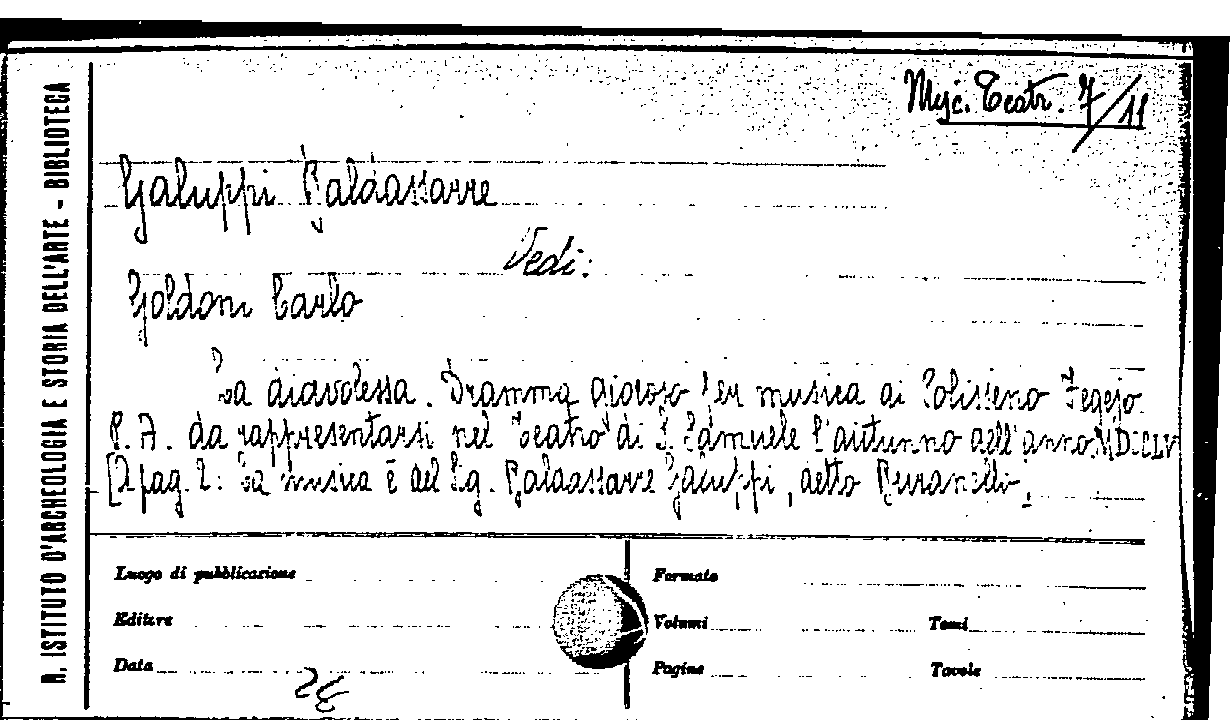 R. ISTITUTO D'ARCHEOLOGIA E STORIA DELL'ARTE - BIBLIOTECA
Misc. Teatr. 7/11
Galuppi Baldassarre
Vedi:
Goldoni Carlo
La diavolessa. Dramma giocoso per musica di Polisseno Fegejo
P. A. da rappresentarsi nel Teatro di S. Samuele l'autunno dell'anno MDCCLV
[A pag. 2: La musica è del Sig. Baldassarre Galuppi, detto Buranello.
Luogo di pubblicazione
Formato
Editore
Volumi
Tomi
Data
Pagine
Tavole